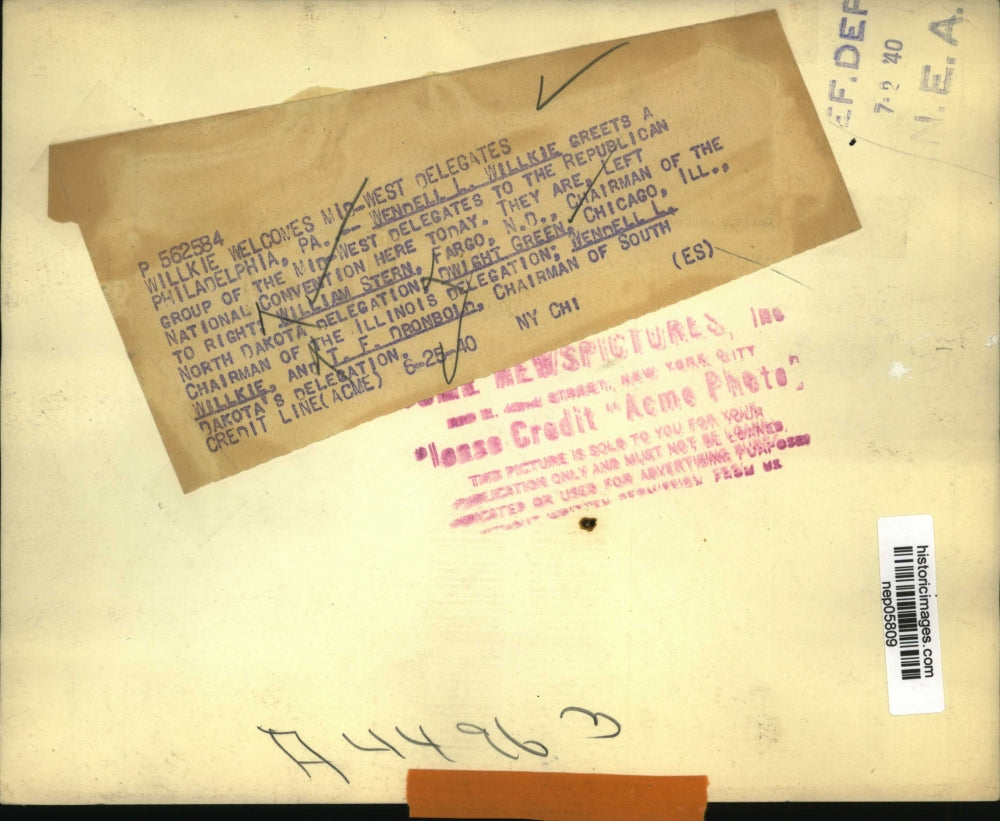 P 562584
WILLKIE WELCOMES MID-WEST DELEGATES
PHILADELPHIA, PA. -- WENDELL L. WILLKIE GREETS A
GROUP OF THE MID-WEST DELEGATES TO THE REPUBLICAN
NATIONAL CONVENTION HERE TODAY. THEY ARE, LEFT
TO RIGHT, WILLIAM STERN, FARGO, N.D., CHAIRMAN OF THE
NORTH DAKOTA DELEGATION; DWIGHT GREEN, CHICAGO, ILL.,
CHAIRMAN OF THE ILLINOIS DELEGATION; WENDELL L.
WILLKIE, AND T. F. DRONBOLD, CHAIRMAN OF SOUTH
DAKOTA'S DELEGATION. (ES)
CREDIT LINE(ACME) 6-25-40 NY CHI
NEWSPICTURES, Inc
STREET, NEW YORK CITY
Please Credit "Acme Photo"
THIS PICTURE IS SOLD TO YOU FOR YOUR
PUBLICATION ONLY AND MUST NOT BE LOANED,
OR USED FOR ADVERTISING PURPOSES
WITHOUT WRITTEN PERMISSION FROM US
7-2 '40
N.E.A.
historicimages.com
nep05809
A44963